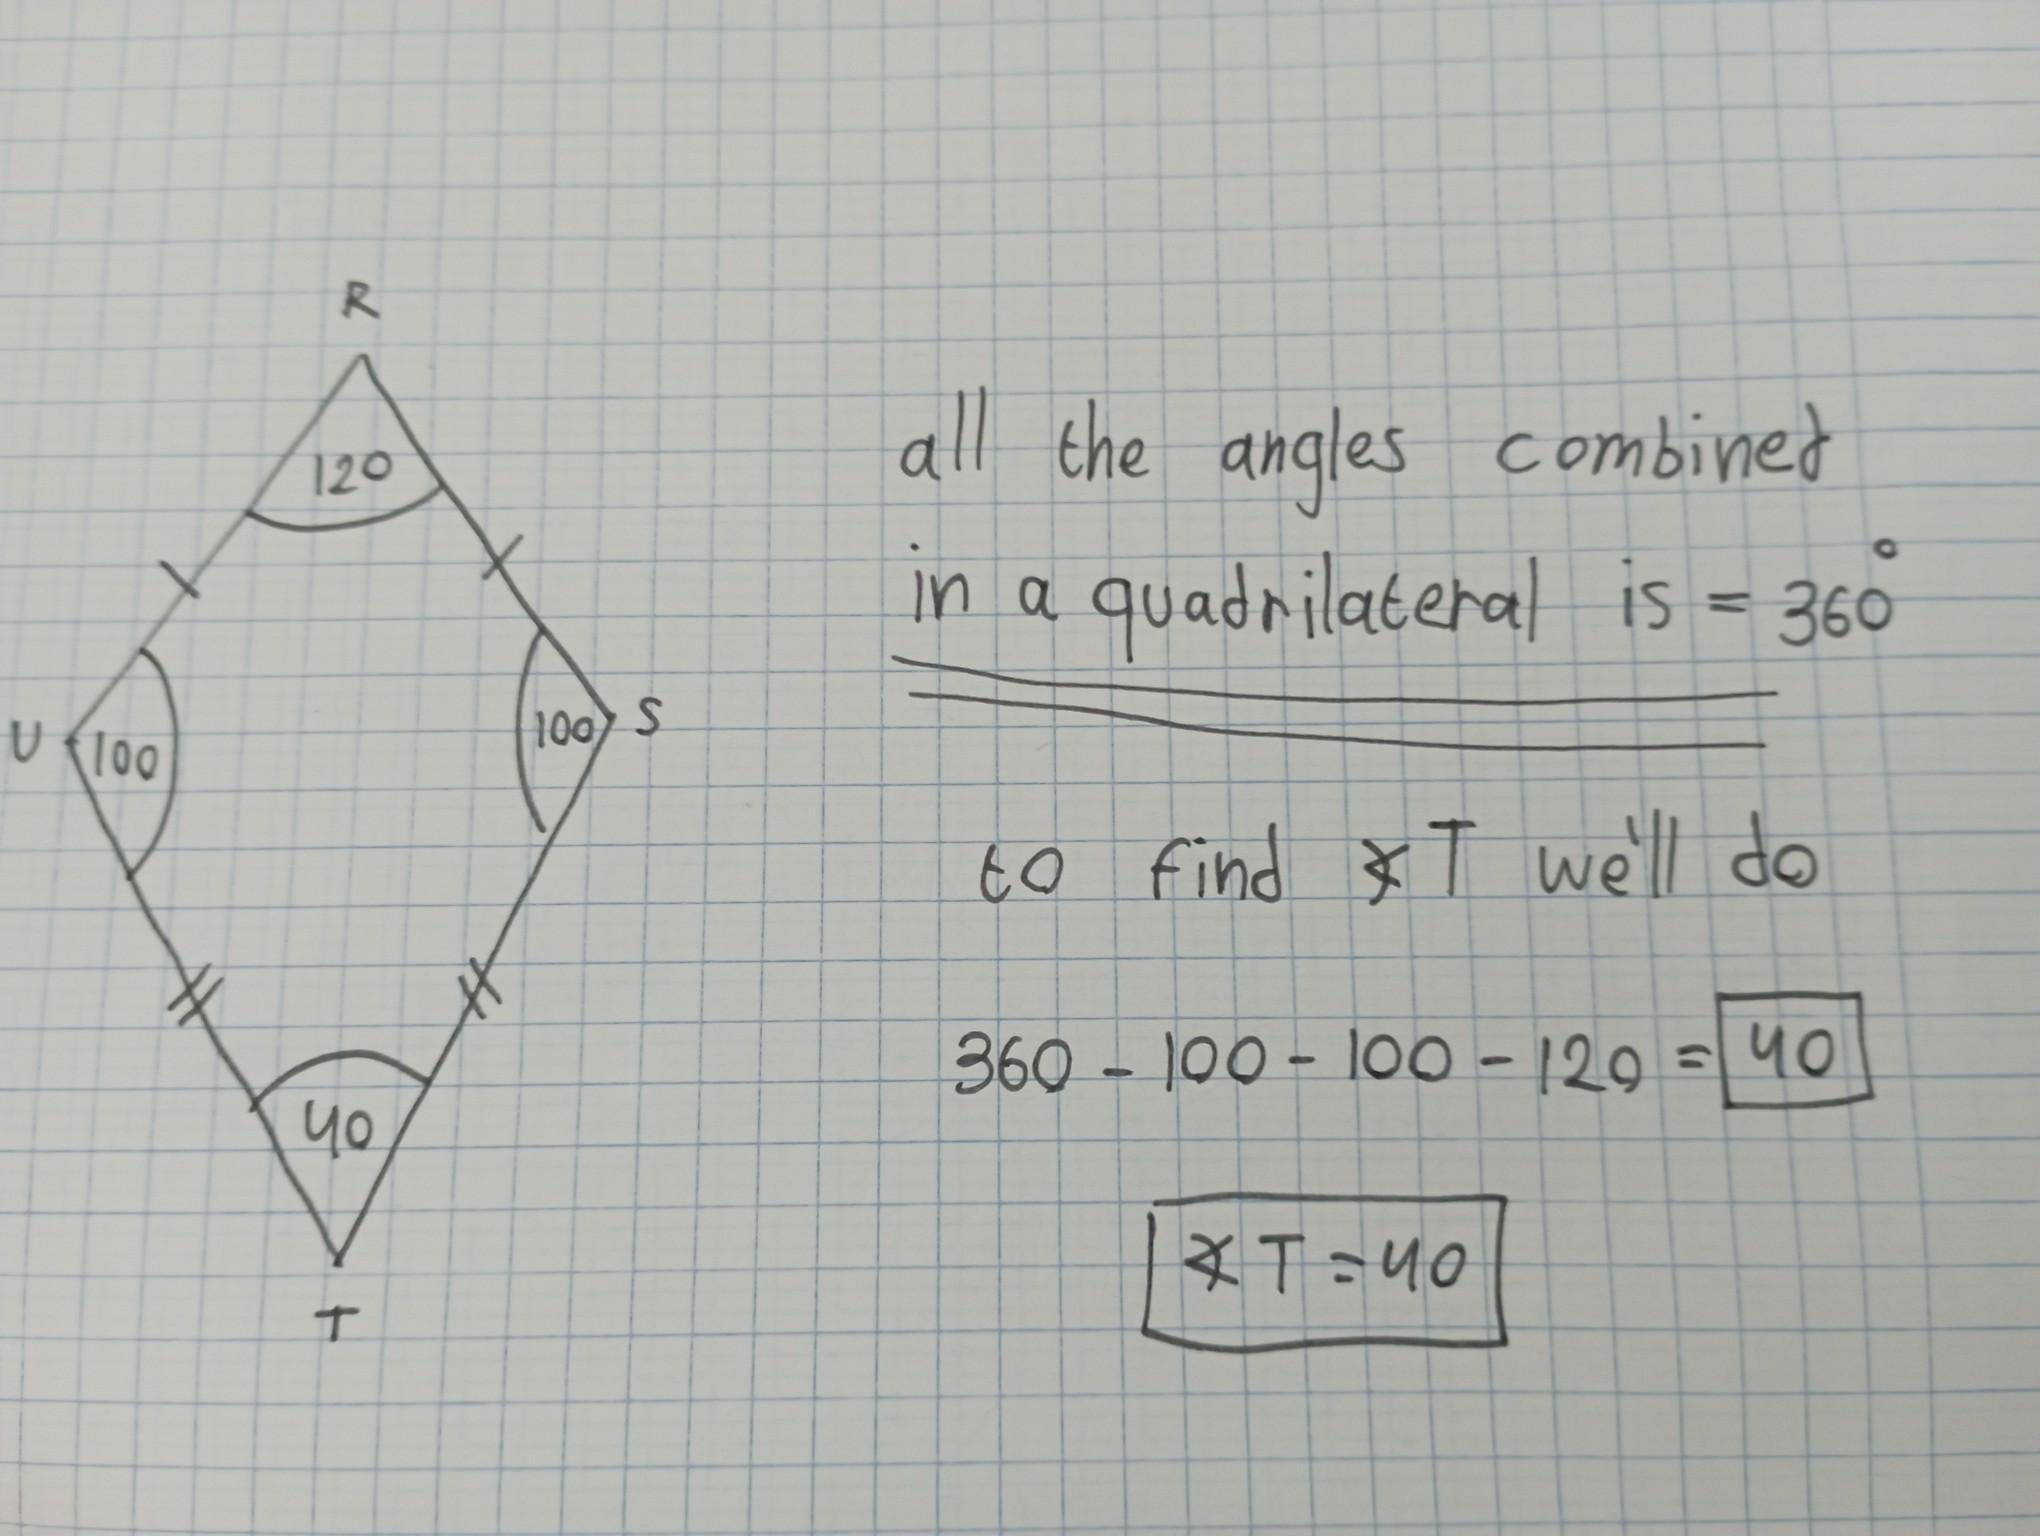 R
120
U
100
100
S
40
T
all the angles combined
in a quadrilateral is = 360°
to find ∡T we'll do
360 - 100 - 100 - 120 = 40
∡T = 40